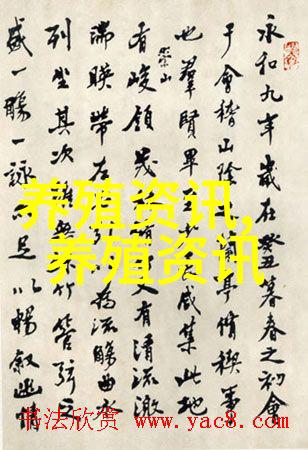 永和九年歲在癸丑暮春之初會
于會稽山陰蘭亭脩稧事
也羣賢畢咸集此地
有崇山峻領茂又有清流激
湍暎帶左為流觴曲水
列坐其次雖無竹管弦之
盛一觴一詠足以暢叙幽情
养殖资讯,
养殖资讯
书法欣赏 www.yac8.com